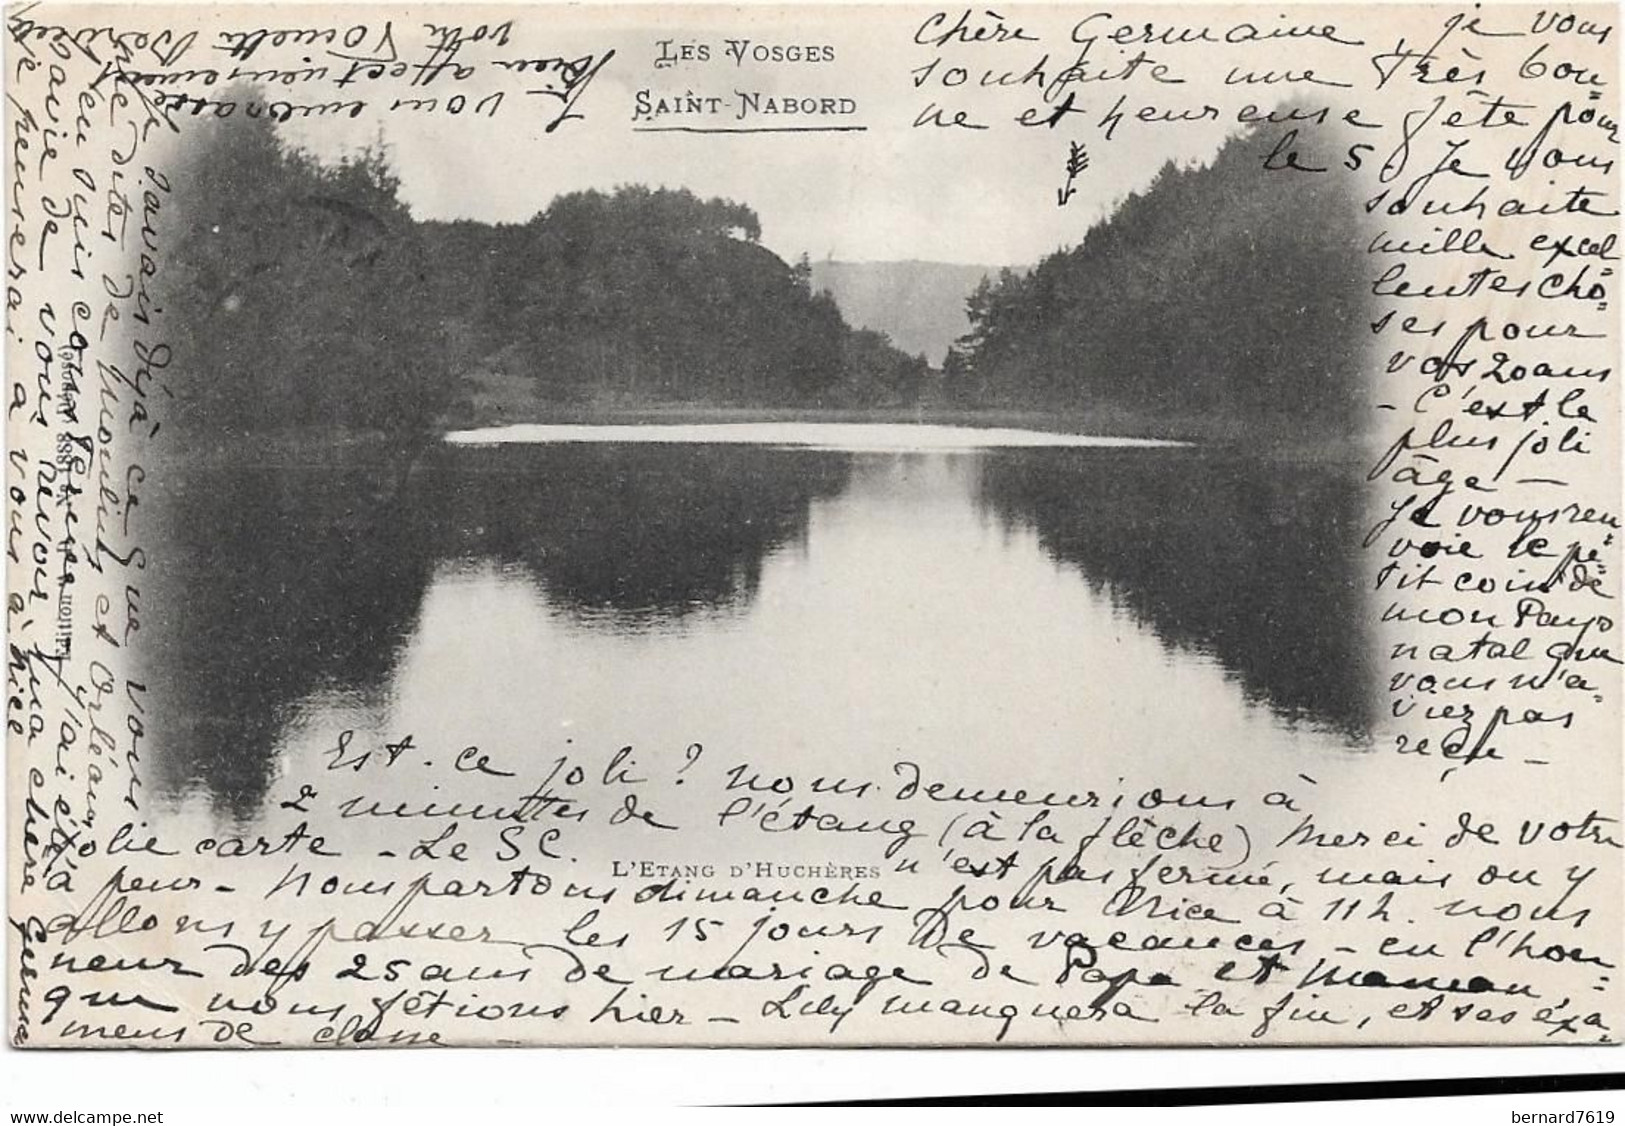 LES VOSGES
SAINT-NABORD
Chère Germaine, je vous
souhaite une Très bon=
ne et heureuse fête pour
le 5, Je vous
souhaite
mille excel=
lentes cho=
ses pour
vos 20 ans
- C'est le
plus joli
âge -
Je vous ren=
voie ce pe=
tit coin de
mon Pays
natal que
vous n'a=
viez pas
reçu -
Est-ce joli ? nous demeurions à
2 minutes de l'étang (à la flèche) Merci de votre
jolie carte - Le SC. n'est pas fermé, mais on y
L'ETANG D'HUCHÈRES
a peur - Nous partons dimanche pour Nice à 11h. nous
allons y passer les 15 jours de vacances - en l'hon=
neur des 25 ans de mariage de Papa et Maman,
que nous fêtions hier - Lily manquera la fin, et ses éxa=
mens de classe -
Je savais déjà ce que vous
me dites de Moulins et Orléans,
j'en suis contente, j'ai été
ravie de vous revoir, ma chère Germaine
je penserai à vous à Nice
Je vous embrasse
bien affectueusement
votre